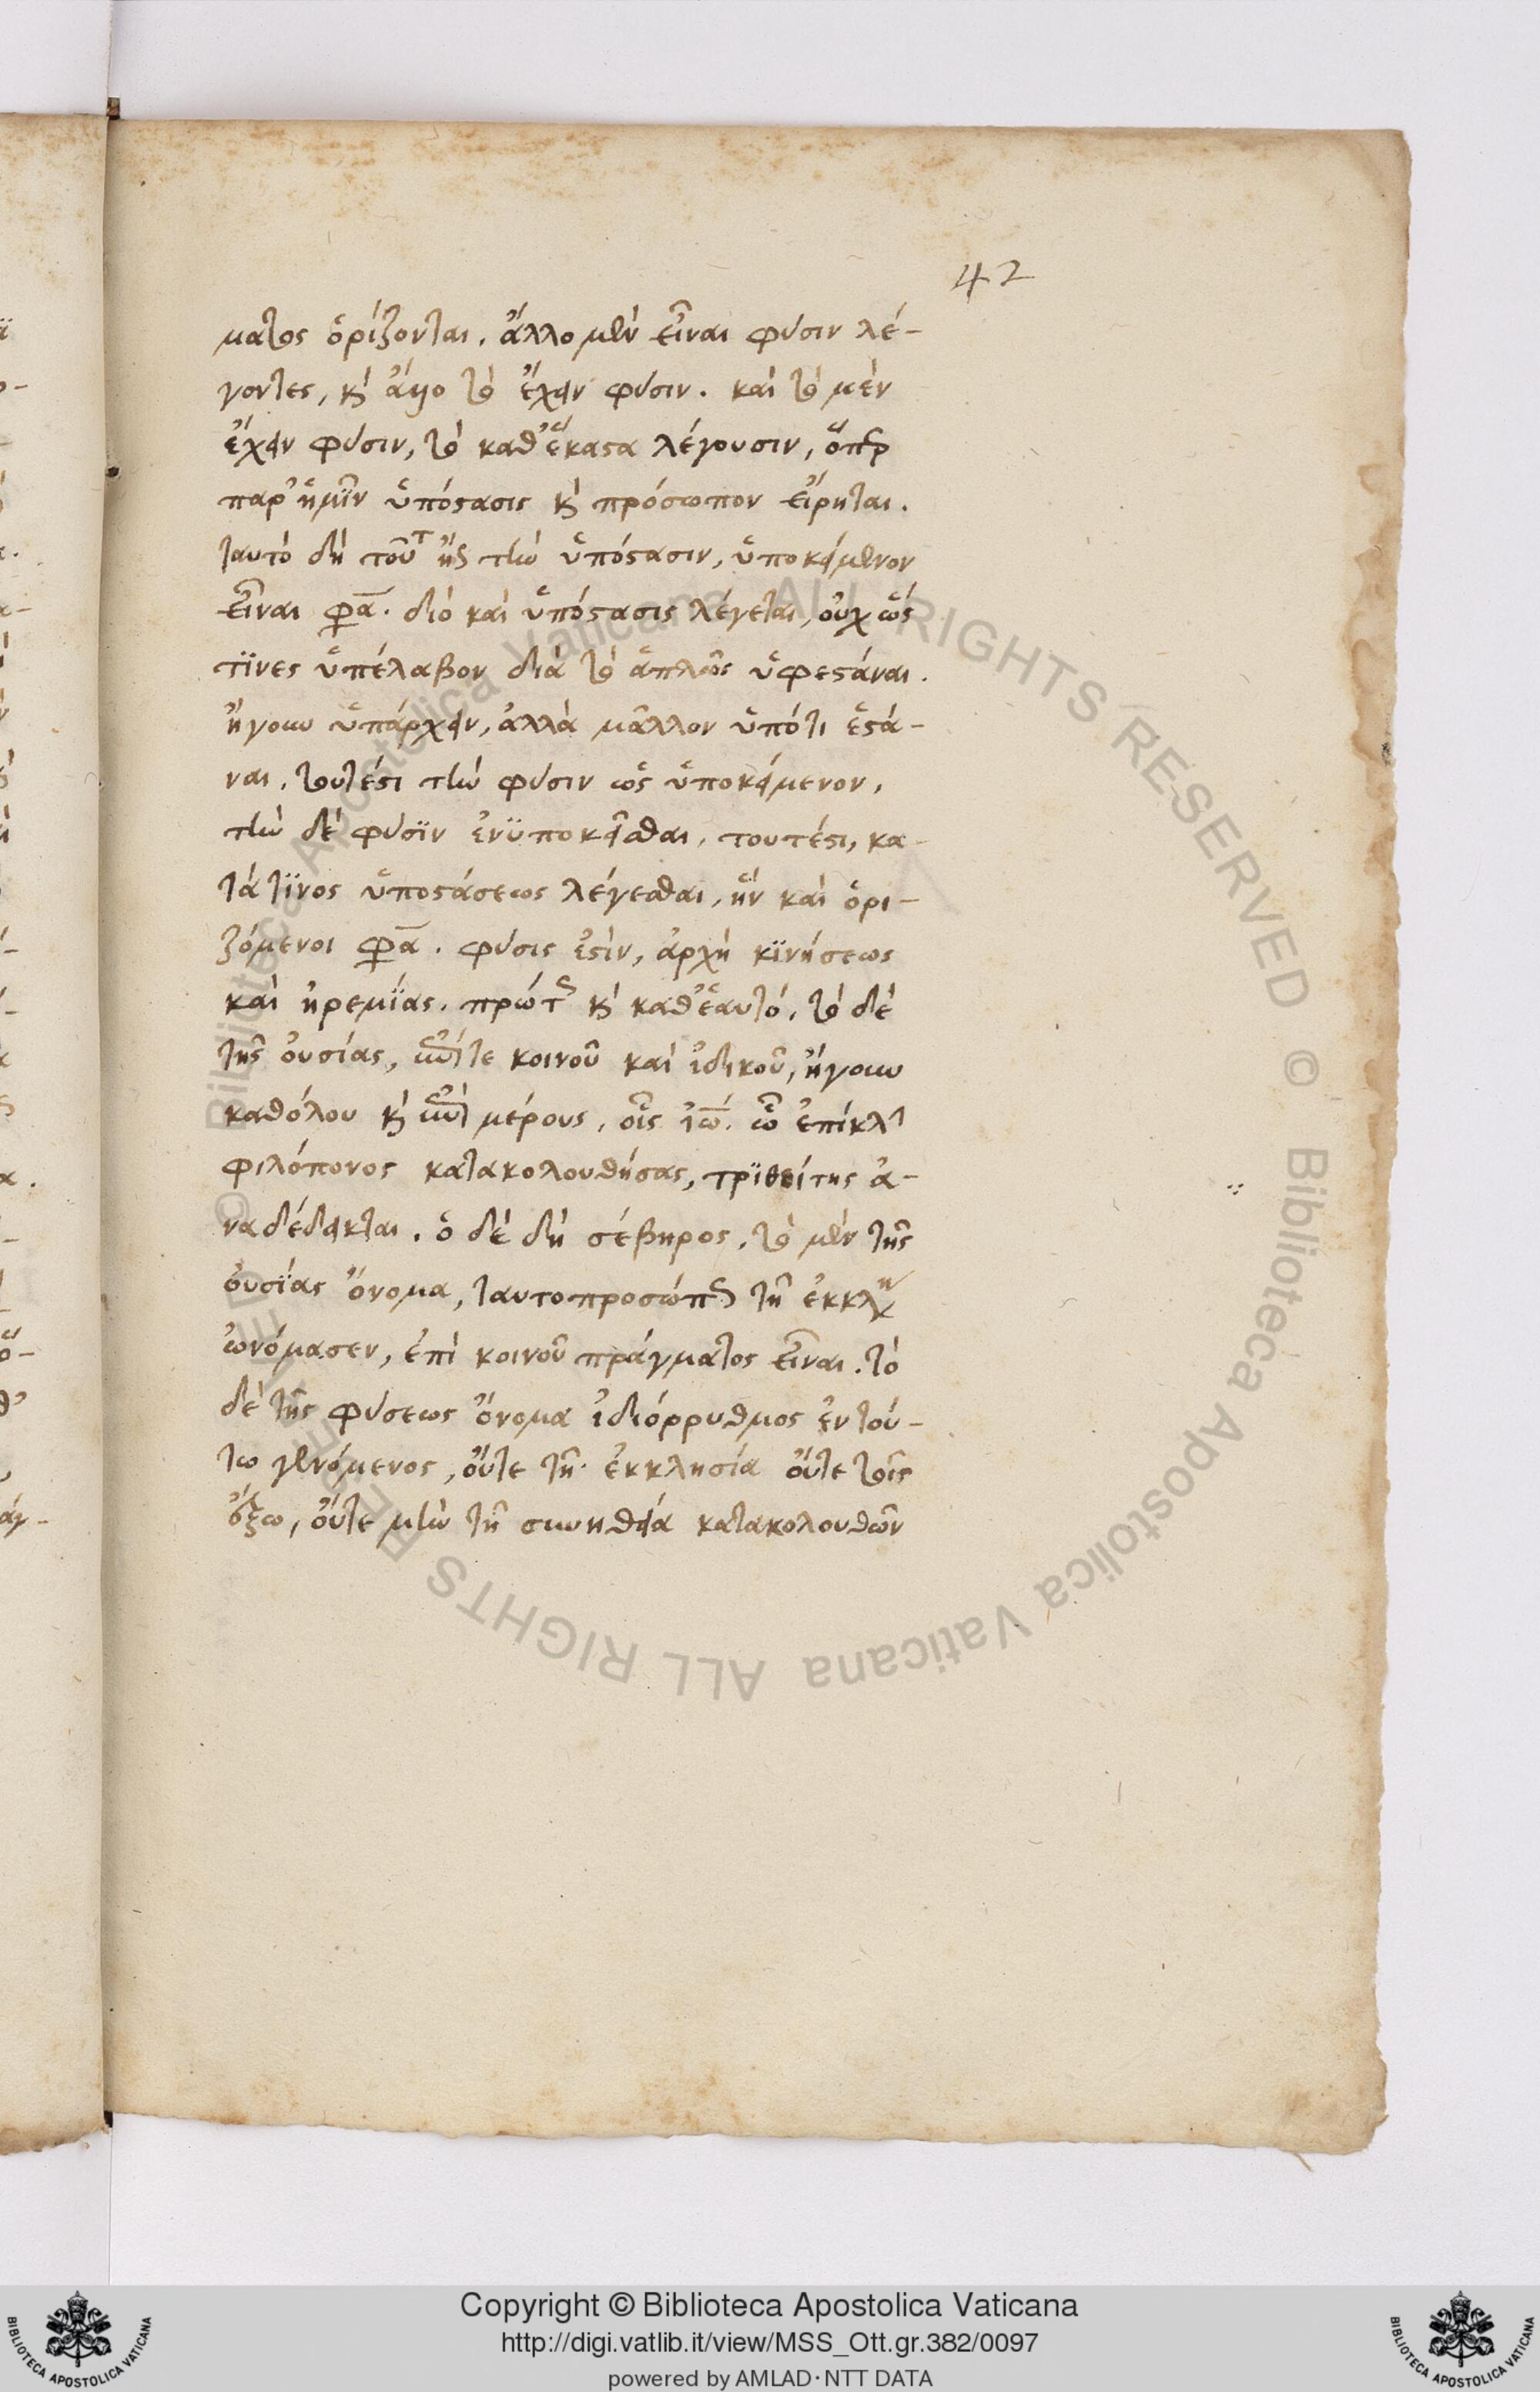 42
ματος ὁρίζονται. ἄλλο μὲν εἶναι φύσιν λέ-
γοντες, κὶ ἄλλο τὸ ἔχειν φύσιν. καὶ τὸ μὲν
ἔχειν φύσιν, τὸ καθ' ἕκαστα λέγουσιν, ὅπερ
παρ' ἡμῖν ὑπόστασις κὶ πρόσωπον εἴρηται.
ταυτὸ δὴ τοῦτ τὴν ὑπόστασιν, ὑποκείμενον
εἶναι φα. διὸ καὶ ὑπόστασις λέγεται, οὐχ ὥς
τϊνες ὑπέλαβον διὰ τὸ ἁπλῶς ὑφεστάναι.
ἤγουν ὑπάρχειν, ἀλλὰ μᾶλλον ὑπότι ἑστά-
ναι, τουτέστι τὴν φύσιν ὡς ὑποκείμενον,
τὴν δὲ φύσϊν ἐνϋποκεῖσθαι, τουτέστι, κα-
τὰ τϊνος ὑποστάσεως λέγεσθαι, ἣν καὶ ὁρι-
ζόμενοι φα. φύσις ἐστὶν, ἀρχὴ κϊνήσεως
καὶ ἠρεμΐας. πρώτως κὶ καθ' ἑαυτό. τὸ δὲ
τῆς οὐσίας, τε κοινοῦ καὶ ἰδικοῦ, ἤγουν
καθόλου κὶ μέρους, οἷς ἰω. ὧ ἐπίκλ
φιλόπονος κατακολουθήσας, τρϊθεΐτης ἀ-
ναδέδεικται. ὁ δὲ δὴ σέβηρος, τὸ μὲν τῆς
οὐσΐας ὄνομα, ταυτοπροσώπως τῆ ἐκκλη
ὠνόμασεν, ἐπὶ κοινοῦ πράγματος εἶναι. τὸ
δὲ τῆς φύσεως ὄνομα ἰδιόρρυθμος ἐν τού-
τω γενόμενος, οὔτε τῆ ἐκκλησία οὔτε τοῖς
ἔξω, οὔτε μὴν τῆ συνηθεία κατακολουθῶν
© Biblioteca Apostolica Vaticana ALL RIGHTS RESERVED
Copyright © Biblioteca Apostolica Vaticana
http://digi.vatlib.it/view/MSS_Ott.gr.382/0097
powered by AMLAD·NTT DATA
BIBLIOTECA APOSTOLICA VATICANA
BIBLIOTECA APOSTOLICA VATICANA